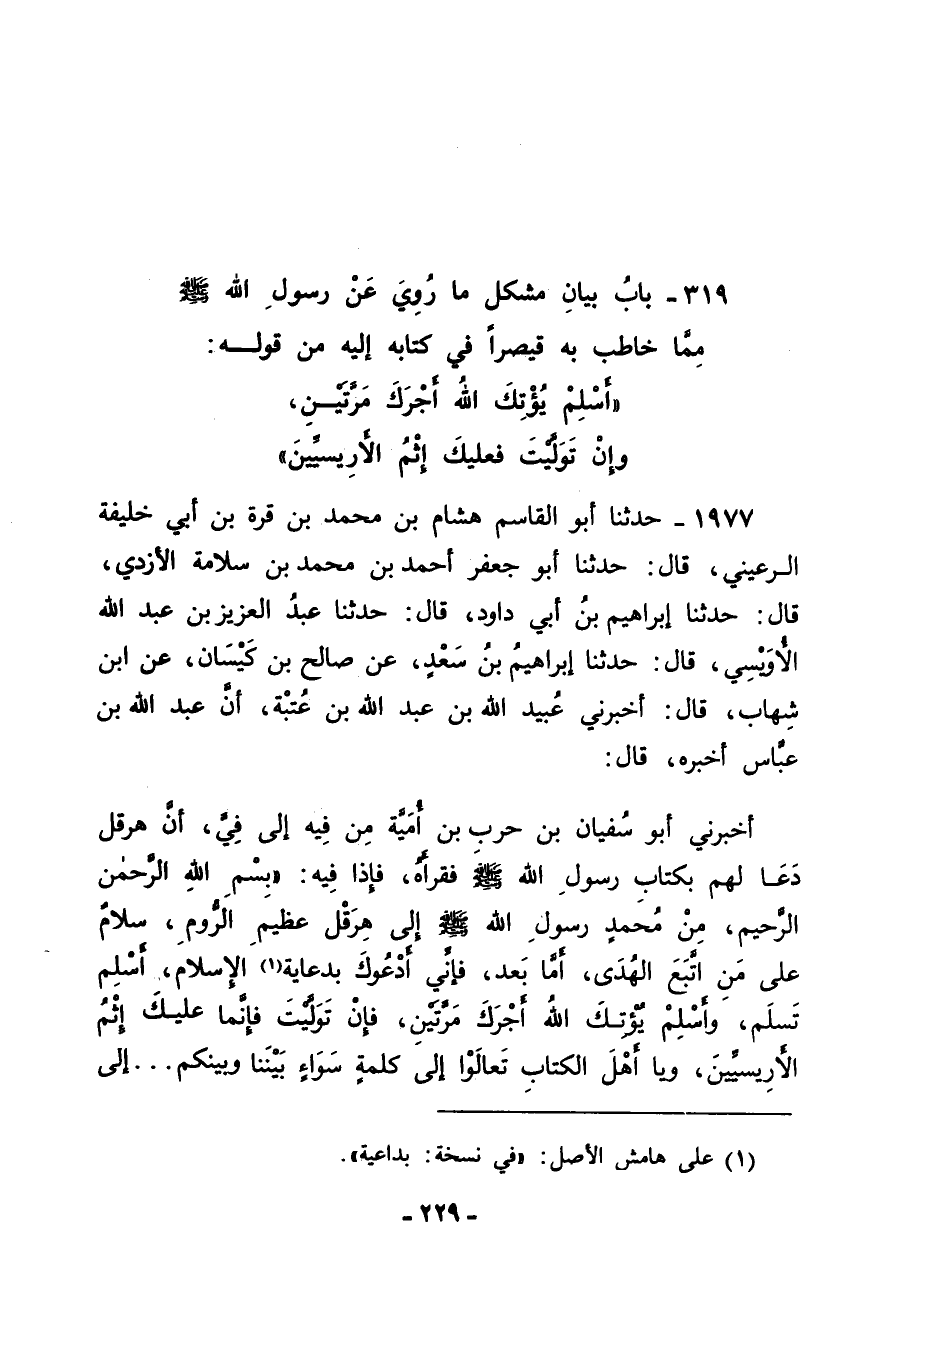 ٣١٩ - بابُ بيانِ مشكل ما رُوِيَ عَنْ رسولِ الله ﷺ
مِمَّا خاطب به قيصراً في كتابه إليه من قولـــه:
«أَسْلِمْ يُؤْتِكَ اللهُ أَجْرَكَ مَرَّتَيْـــنِ،
وإنْ تَوَلَّيْتَ فعليكَ إثْمُ الأَرِيسيِّينَ»
١٩٧٧ - حدثنا أبو القاسم هشام بن محمد بن قرة بن أبي خليفة
الـرعيني، قال: حدثنا أبو جعفر أحمد بن محمد بن سلامة الأزدي،
قال: حدثنا إبراهيم بنُ أبي داود، قال: حدثنا عبدُ العزيز بن عبد الله
الأُوَيْسِي، قال: حدثنا إبراهيمُ بنُ سَعْدٍ، عن صالح بن كَيْسَان، عن ابن
شِهاب، قال: أخبرني عُبيد الله بن عبد الله بن عُتبْة، أنَّ عبد الله بن
عبَّاس أخبره، قال:
أخبرني أبو سُفيان بن حربِ بن أُمَيَّة مِن فِيه إلى فِيَّ، أنَّ هرقل
دَعَـا لهم بكتابِ رسولِ الله ﷺ فقرأَهُ، فإذا فِيه: «بِسْمِ اللهِ الرَّحمٰن
الرَّحيم، مِنْ مُحمدٍ رسولِ الله ﷺ إلى هِرَقْل عظيمِ الرُّومِ، سلامٌ
على مَنِ اتَّبَعَ الهُدَى، أمَّا بَعد، فإنَّي أدْعُوكَ بدعاية(١) الإسلام، أَسْلِم
تَسلَم، وأَسْلِمْ يُؤْتِـكَ اللهُ أَجْرَكَ مَرَّتَينِ، فإنْ تَوَلَّيْتَ فإنَّما عليـكَ إثْمُ
الأَرِيسيَِّينَ، ويا أَهْلَ الكتابِ تَعالَوْا إلى كلمةٍ سَوَاءٍ بَيْنَنا وبينكم... إلى
(١) على هامش الأصل: «في نسخة: بداعية».
- ٢٢٩ -